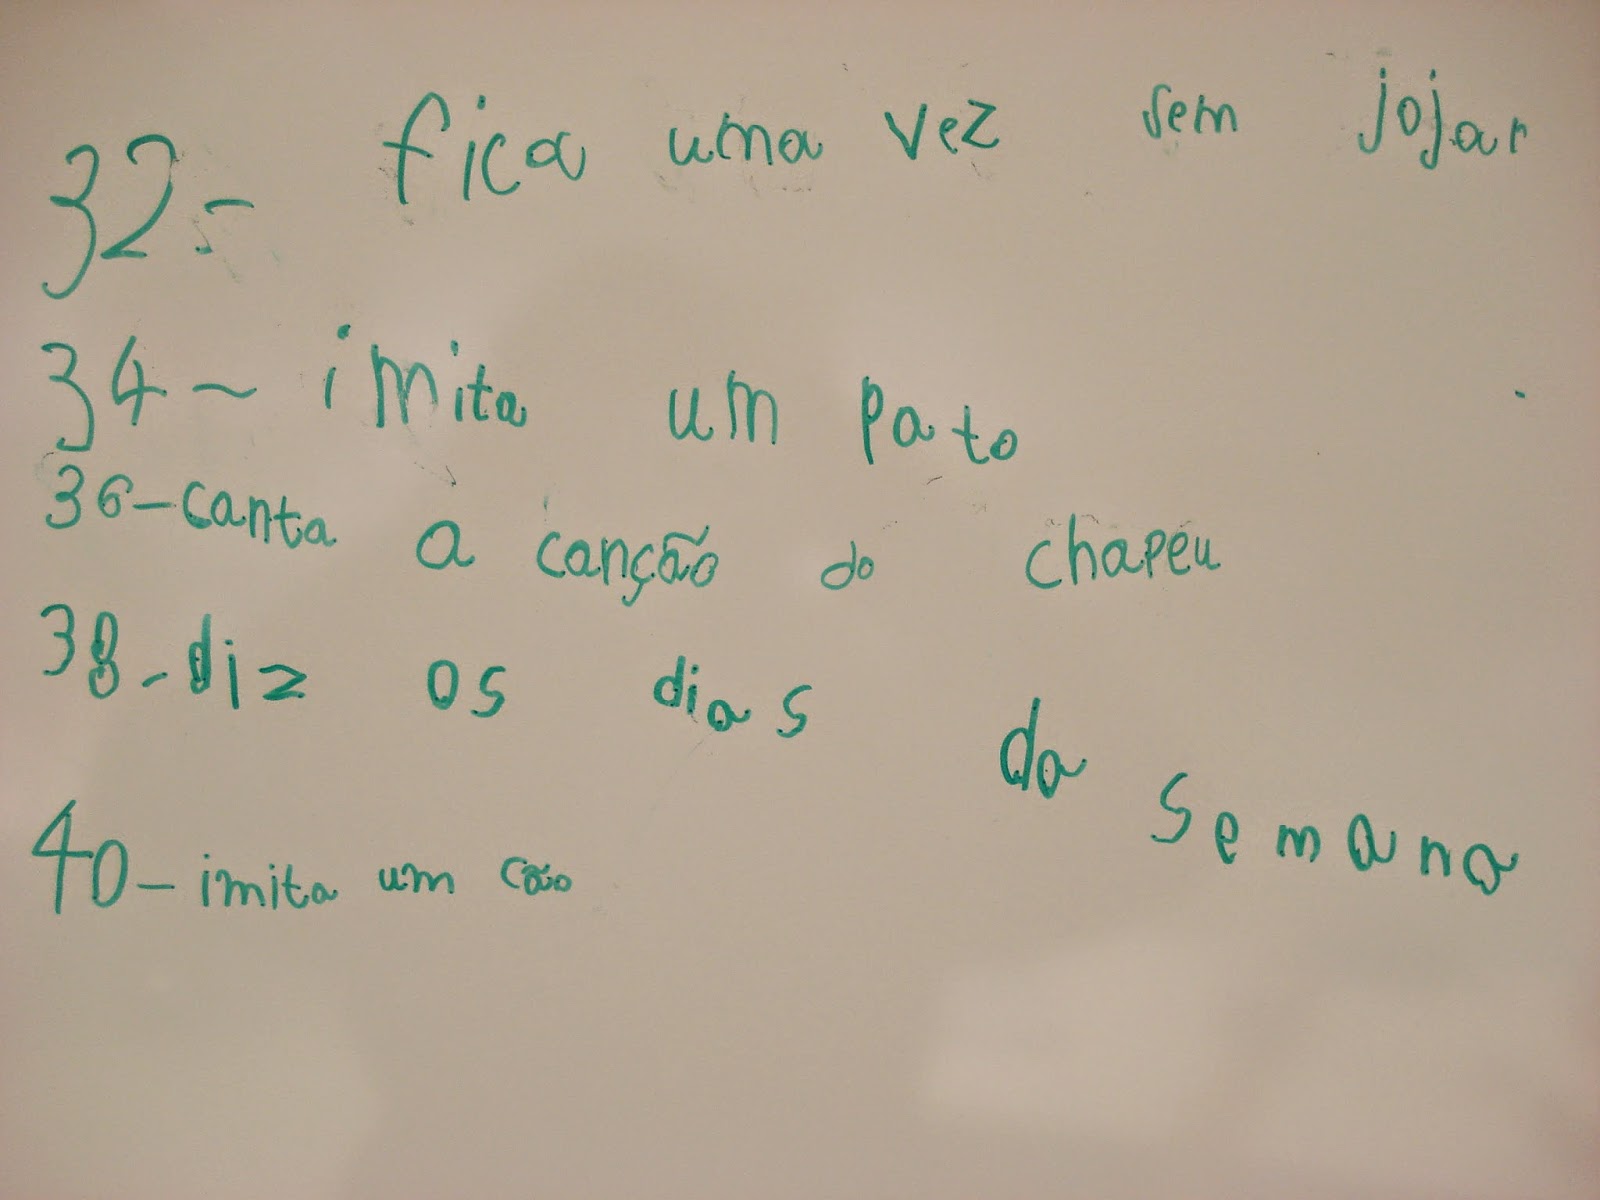 32 = fica uma vez sem jojar
34 - imita um pato
36 - canta a canção do chapéu
38 - diz os dias da semana
40 - imita um cão